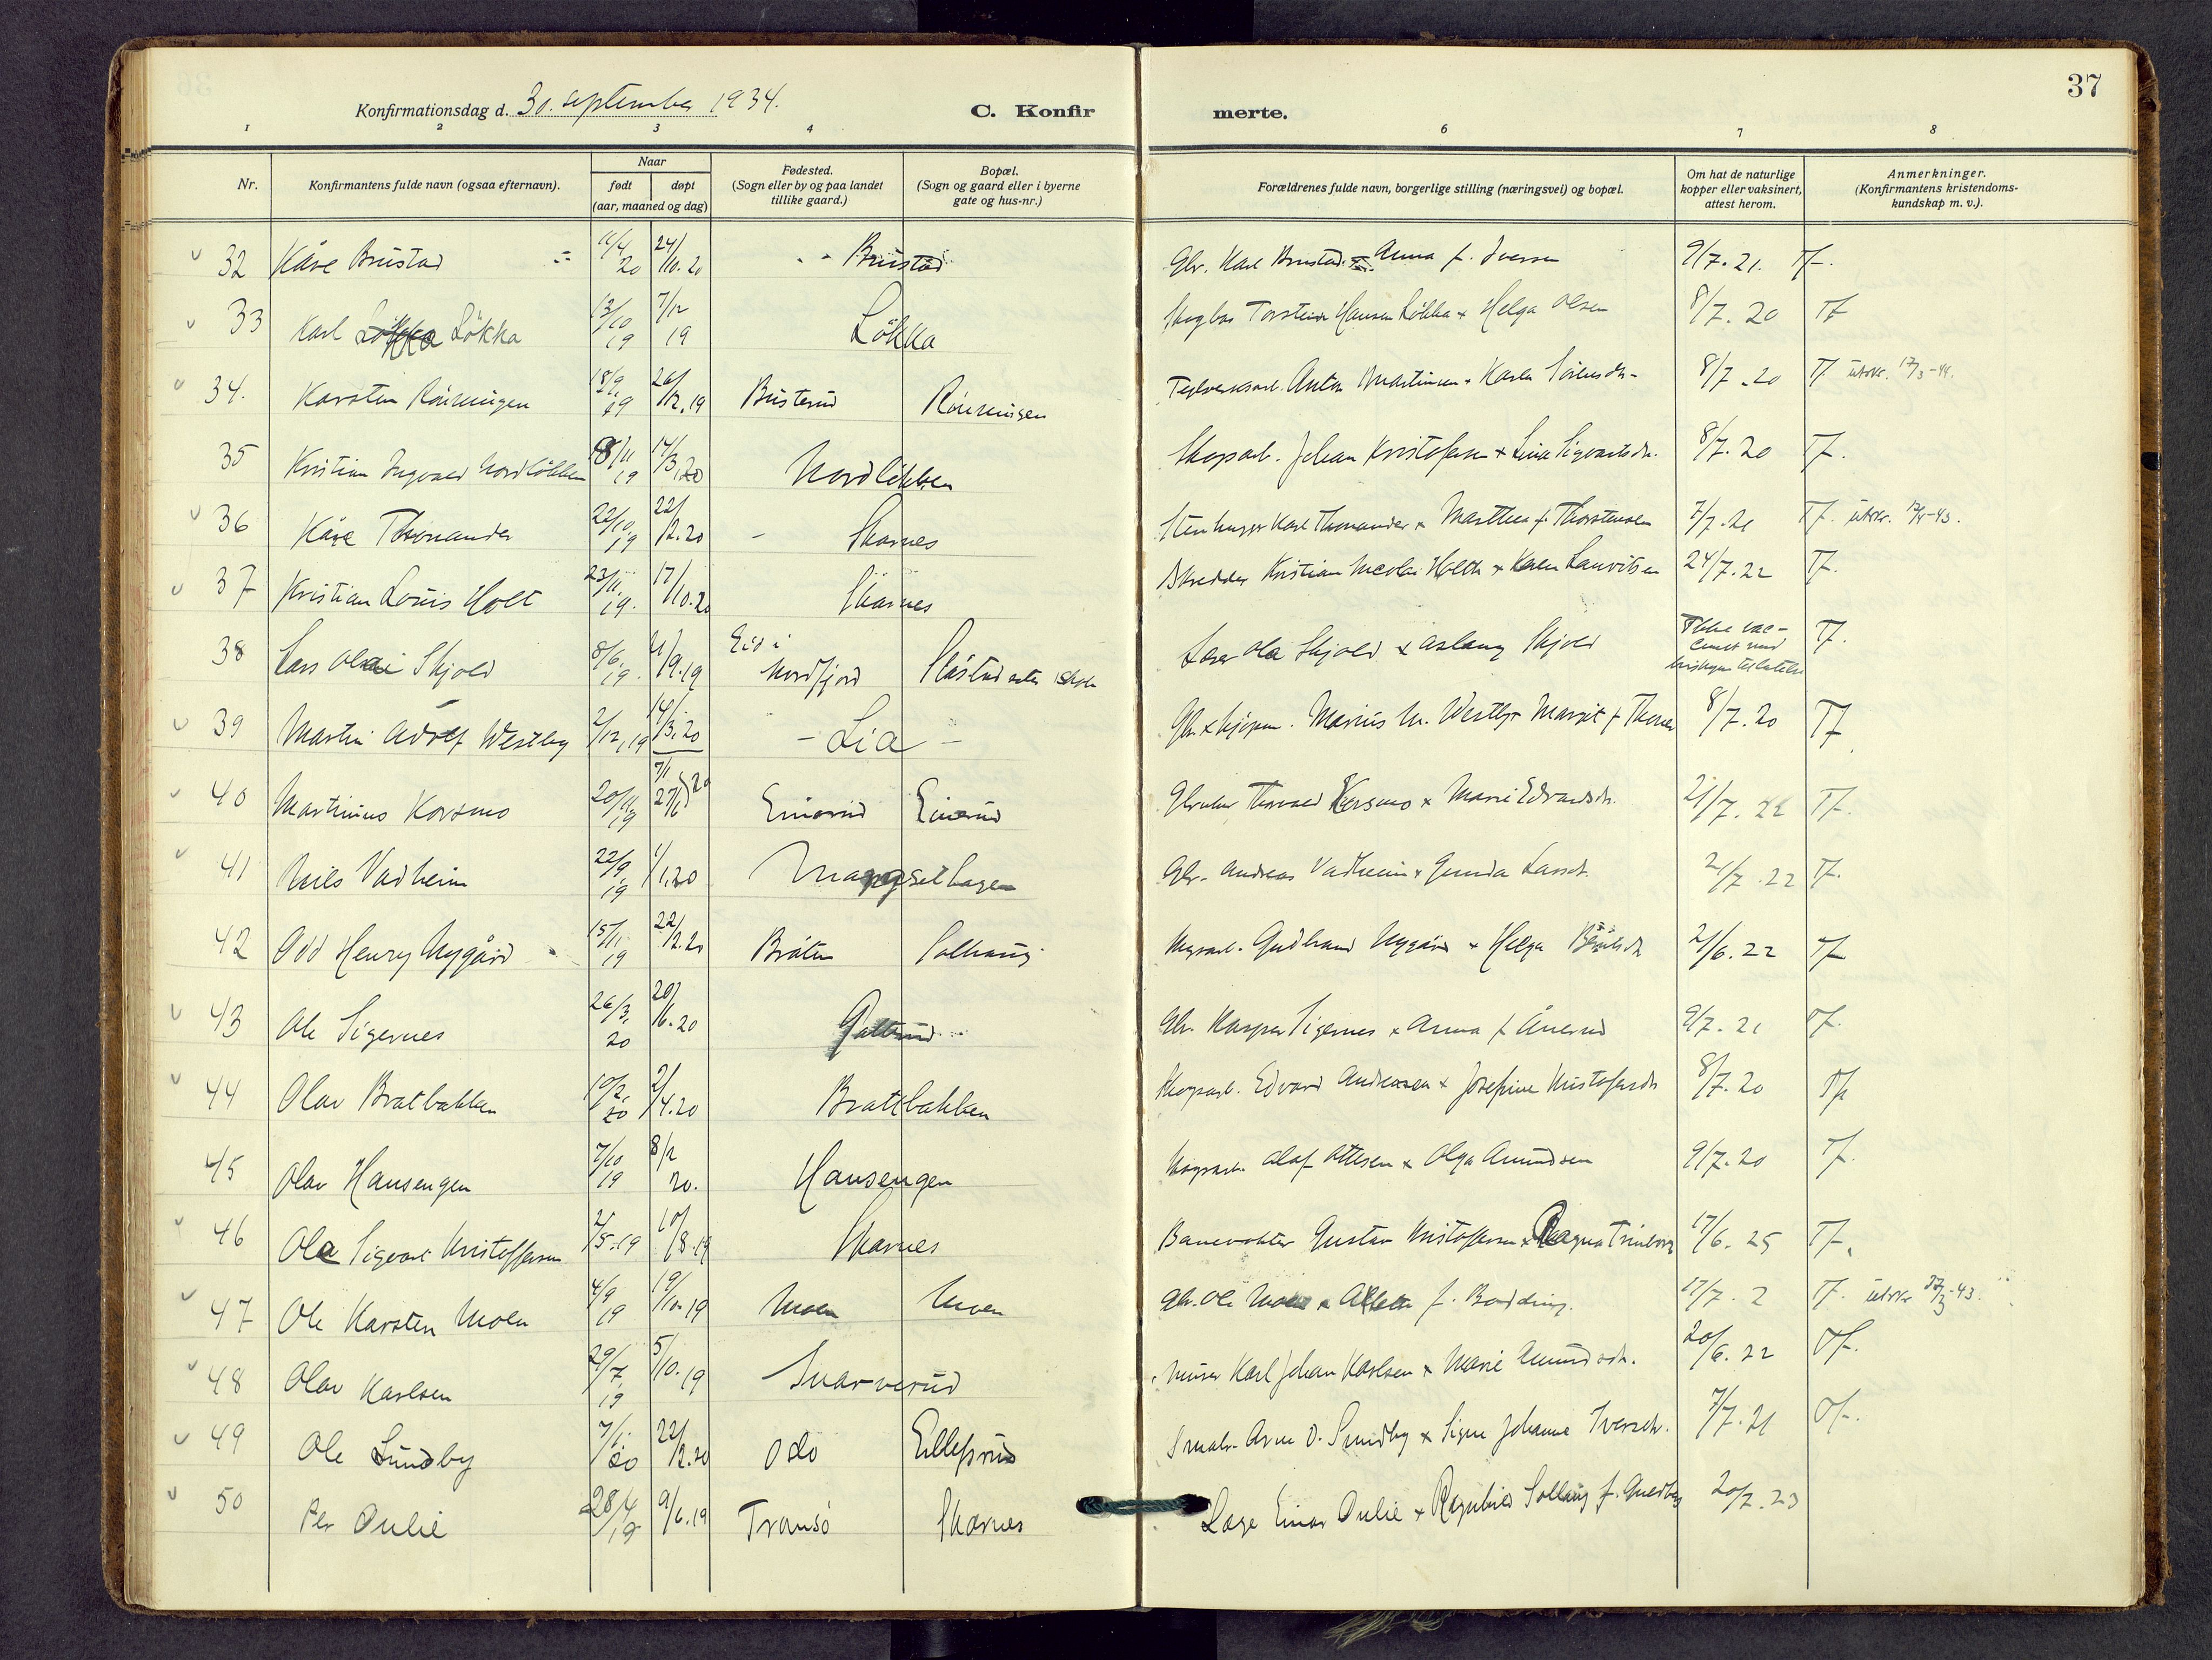 37
Konfirmationsdag d. 30. september 1934. C. Konfir merte.
1 2 3 4 6 7 8
Nr. Konfirmantens fulde navn (ogsaa efternavn). Naar født døpt (aar, maaned og dag) Fødested. (Sogn eller by og paa landet tillike gaard.) Bopæl. (Sogn og gaard eller i byerne gate og hus-nr.) Forældrenes fulde navn, borgerlige stilling (næringsvei) og bopæl. Om hat de naturlige kopper eller vaksinert, attest herom. Anmerkninger. (Konfirmantens kristendoms-kundskap m. v.).
32 Kåre Brustad 11/4 20 24/10.20 Brustad Gbr. Karl Brustad x Anna f. Iversen 9/7.21. Tf.
33 Karl Løkka 13/10 19 7/12 19 Løkka Torstein Hansen Løkka x Helga Olsen 8/7.20 Tf
34. Karsten Rönningen 18/9 19 26/12.19 Busterud Rönningen Anton Martinsen x 8/7.20 Tf utskr. 17/3-44.
35 Kristian Ingvald Nordlökken 8/11 19 14/3.20 Nordlökken Skogsarb. Johan Kristofersen x Lina Sigvartsdr. 8/7.20 Tf.
36 Kåre Thonander 22/10 19 22/2.20 - Skarnes Stenhugger Karl Thonander x Marthea f. Thorstensen 7/7.21 Tf. utskr.
37 Kristian Louis Holt 23/11 19. 17/10.20 Skarnes Skredder Kristian Nicolai Holth x Karen Lauritsen 24/7.22 Tf.
38 Lars Olai Skjold 8/6 19. 21/9.19 Eid i Nordfjord Slåstad Ola Skjold x Aslaug Skjold Ikke vac- Tf.
39 Martin Adolf Westby 2/12.19 14/3.20 - Lia - Marius M. Westby x Margit f. 8/7.20 Tf
40 Martinus Korsmo 20/11 19 7/1 20 Einerud Einerud Thorvald Korsmo x Marie Edvardsdr. 21/7.22 Tf.
41 Nils Vadheim 22/9 19 1/1.20 Mangselhagen Gbr. Andreas Vadheim x Gunda Larsdr. 21/7.22 Tf.
42 Odd Henry Nygård 15/11 19 22/2.20 Bråten Solhaug Gudbrand Nygård x Helga 21/6.22 Tf
43 Ole Sigernes 26/3. 20 20/6.20 Gbr. Kasper Sigernes x Anna f. Ånerud 9/7.21 Tf.
44 Olav Bratbakken 10/2. 20 2/4.20 Bratbakken Skogsarb. Edvard Andreasen x Josefine Kristofersdr 8/7.20 Tf
45 Olav Hansengen 7/10 19 8/2 20. Hansengen Skogsarb. Olaf Ottesen x Olga Amundsen 9/7.20 Tf.
46 Ola Sigvart Kristoffersen 2/5.19 10/8.19 Skarnes Banevokter Gustav Kristoffersen x Ragna 17/6.25 Tf.
47 Ole Karsten Moen 4/9 19 19/10.19 Moen Moen Gbr. Ole Moen x f. Bodding. 17/7.2 Tf. utskr
48 Olav Karlsen 29/7. 19 5/10.19 Snarverud Murer Karl Johan Karlsen x Marie Amundsdr. 20/6.22 Tf.
49 Ole Sundby 7/1. 20 22/2.20 Oslo Ellefsrud Arne O. Sundby x Signe Johanne Iversdr. 7/7.21 Tf.
50 Per Aulie 28/4 19 9/6.19 Tromsö Skarnes Læge Einar Aulie x Ragnhild Solbjørg f. 20/7.23